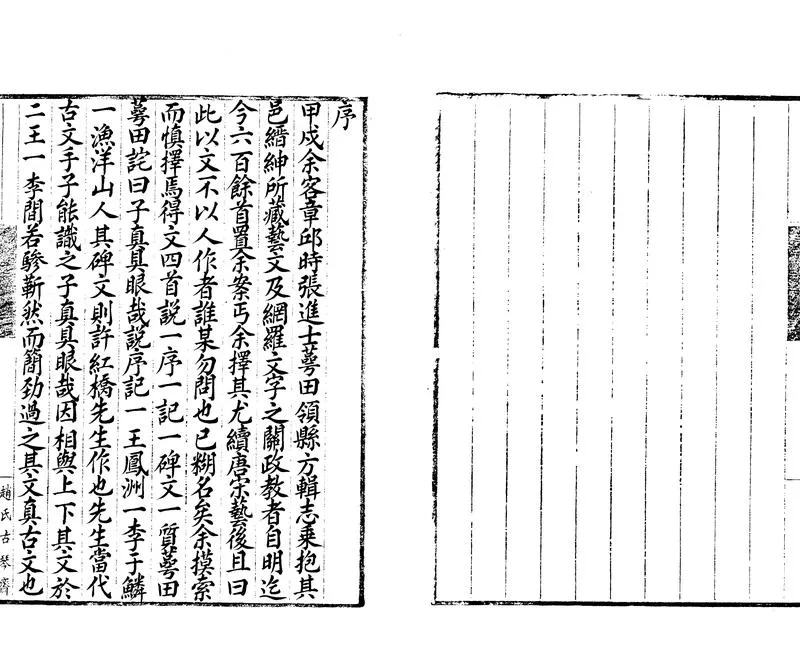 序
甲戌余客章邱時張進士蕚田領縣方輯志乘抱其
邑縉紳所藏藝文及網羅文字之關政教者自明迄
今六百餘首置余案丐余擇其尤續唐宋藝後且曰
此以文不以人作者誰某勿問也已糊名矣余摸索
而慎擇焉得文四首說一序一記一碑文一質蕚田
蕚田詫曰子真具眼哉說序記一王鳳洲一李于鱗
一漁洋山人其碑文則許紅橋先生作也先生當代
古文手子能識之子真具眼哉因相與上下其文於
二王一李間若驂靳然而簡勁過之其文真古文也
趙氏古琴齋